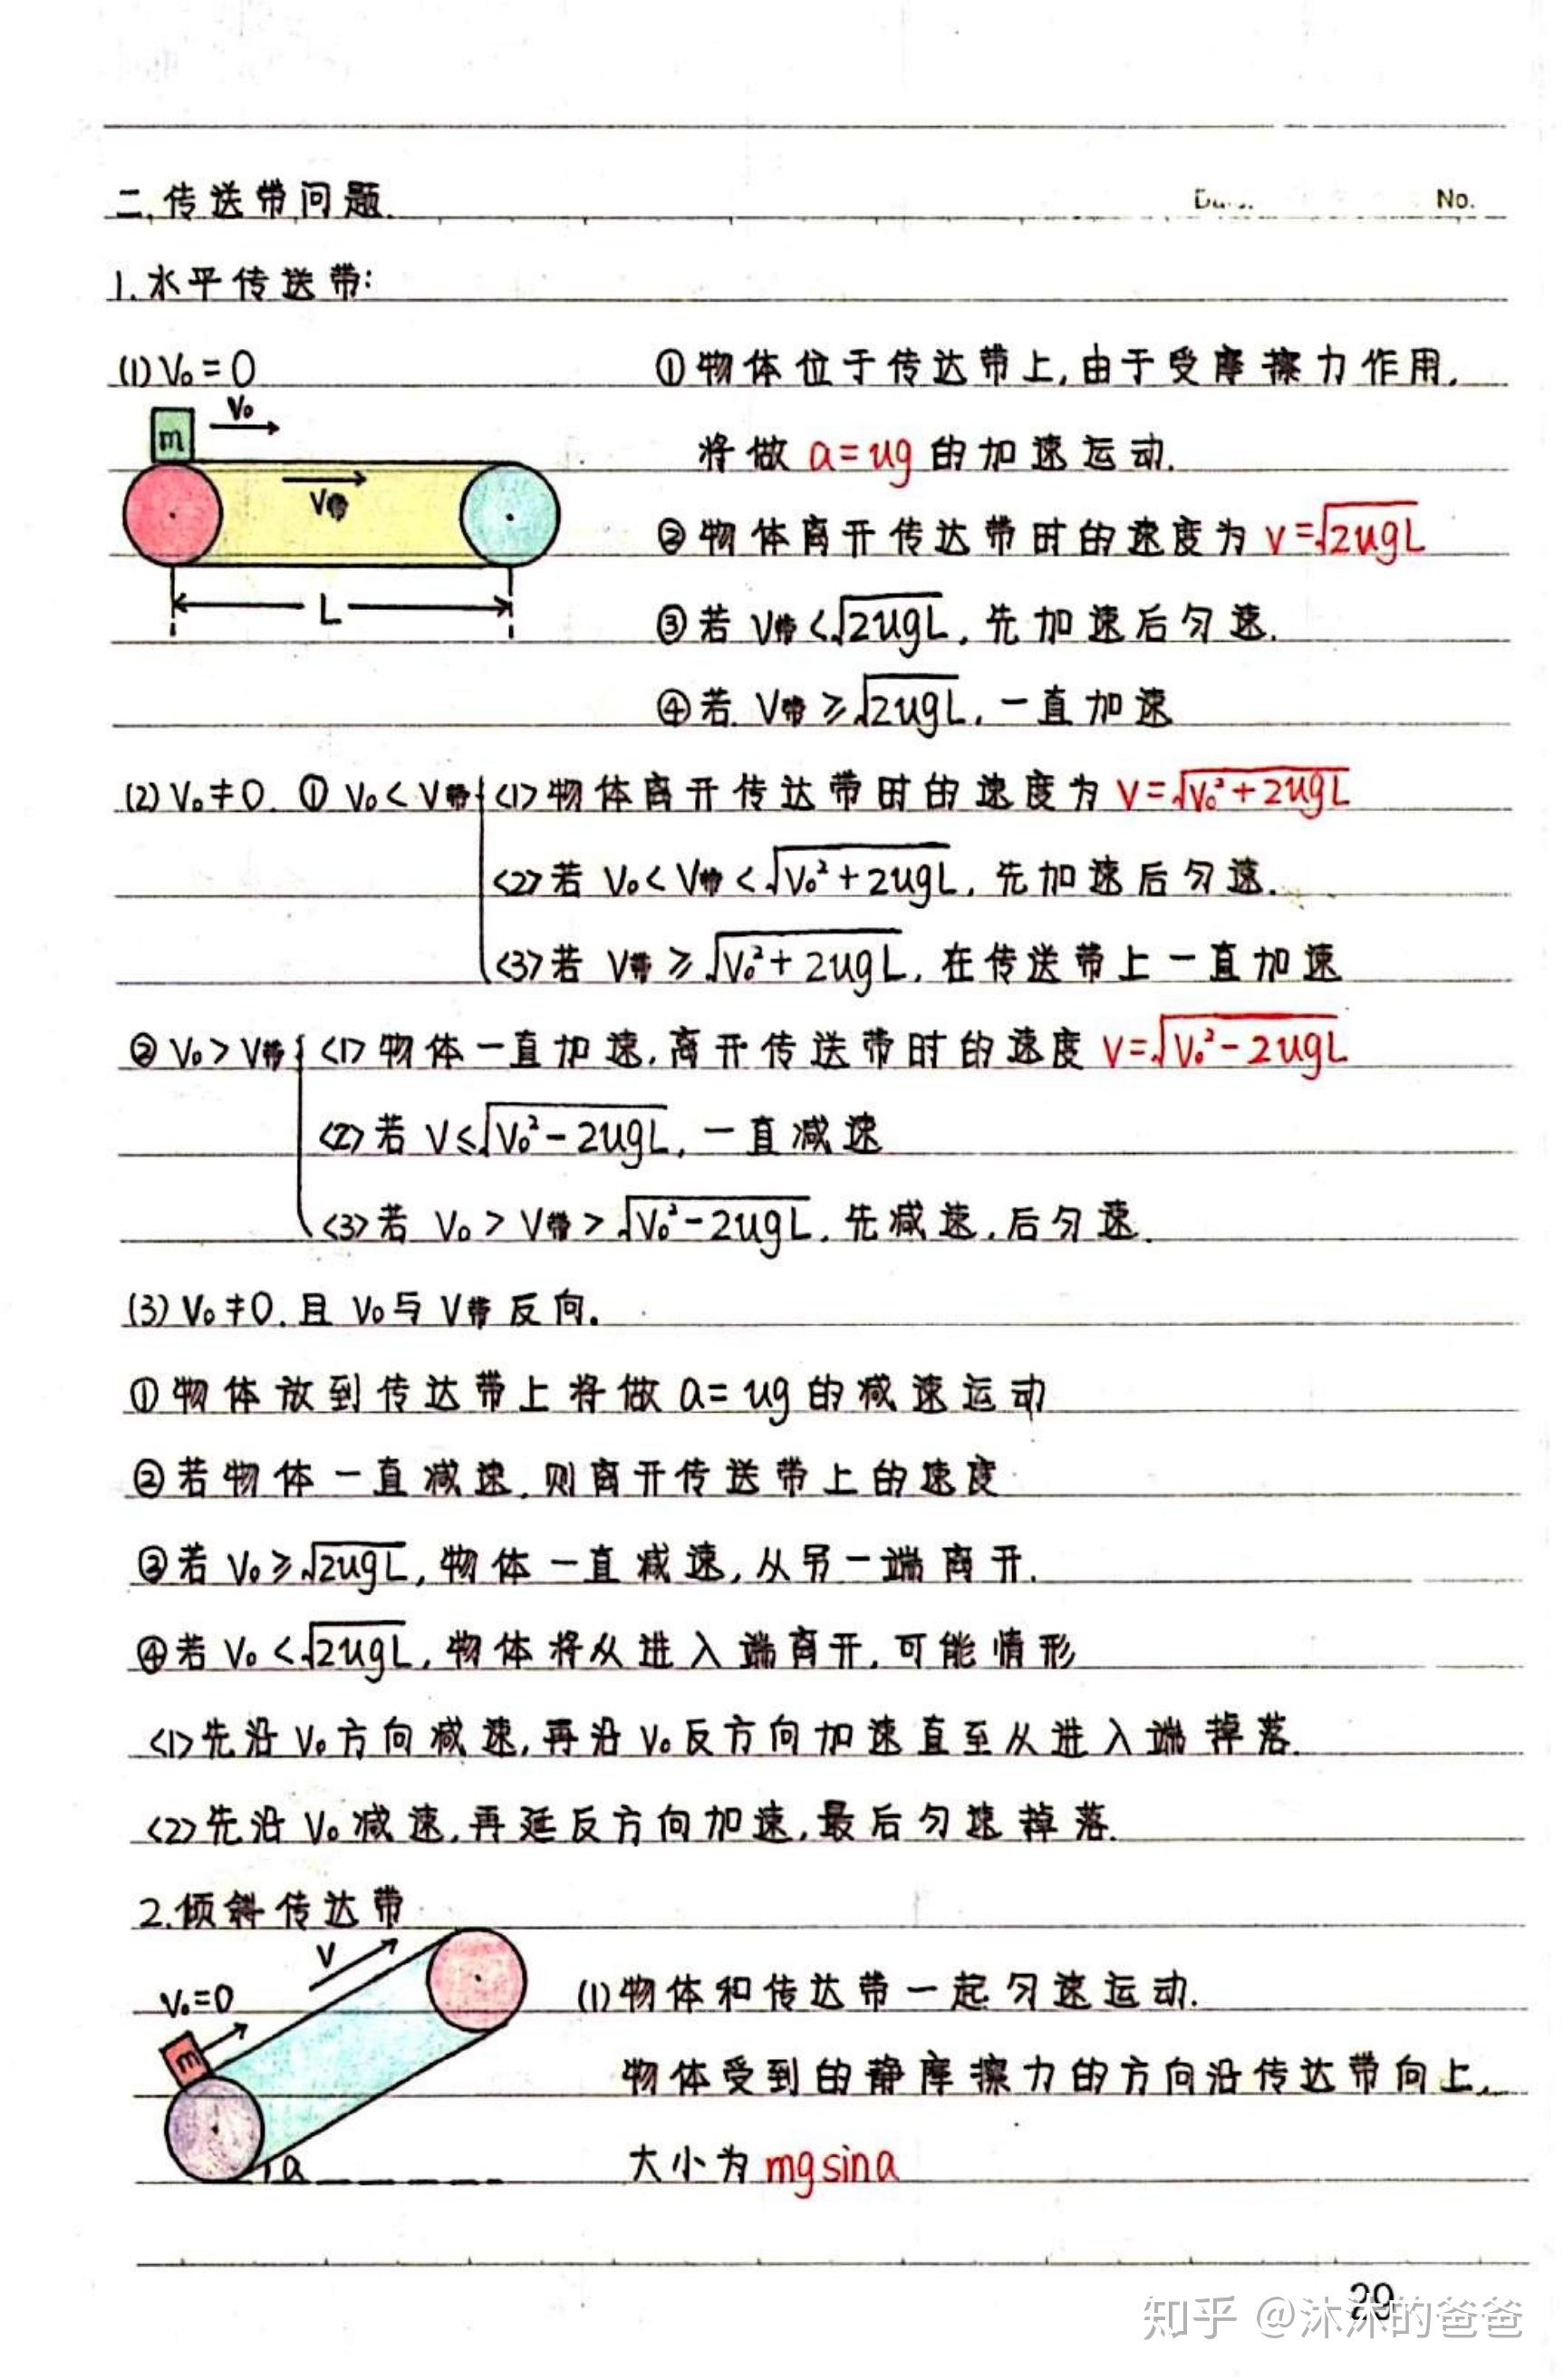 二.传送带问题.
No.
1.水平传送带:
(1) V₀=0
①物体位于传达带上,由于受摩擦力作用,
V₀
m
将做 a=ug 的加速运动.
V带
②物体离开传达带时的速度为 v=√2ugL
L
③若 V带<√2ugL, 先加速后匀速.
④若. V带≥√2ugL, 一直加速
(2) V₀≠0. ① V₀<V带 <1>物体离开传达带时的速度为 v=√V₀²+2ugL
<2>若 V₀<V带<√V₀²+2ugL, 先加速后匀速.
<3>若 V带≥√V₀²+2ugL, 在传送带上一直加速
② V₀>V带 <1>物体一直加速,离开传送带时的速度 v=√V₀²-2ugL
<2>若 V≤√V₀²-2ugL, 一直减速
<3>若 V₀>V带>√V₀²-2ugL, 先减速,后匀速.
(3) V₀≠0.且 V₀与V带反向.
①物体放到传达带上将做 a=ug的减速运动
②若物体一直减速,则离开传送带上的速度
③若 V₀≥√2ugL,物体一直减速,从另一端离开.
④若 V₀<√2ugL,物体将从进入端离开,可能情形
<1>先沿V₀方向减速,再沿V₀反方向加速直至从进入端掉落.
<2>先沿V₀减速,再延反方向加速,最后匀速掉落.
2.倾斜传达带
V
V₀=0
m
a
(1)物体和传达带一起匀速运动.
物体受到的静摩擦力的方向沿传达带向上,
大小为 mgsina
29
知乎 @沐沐的爸爸